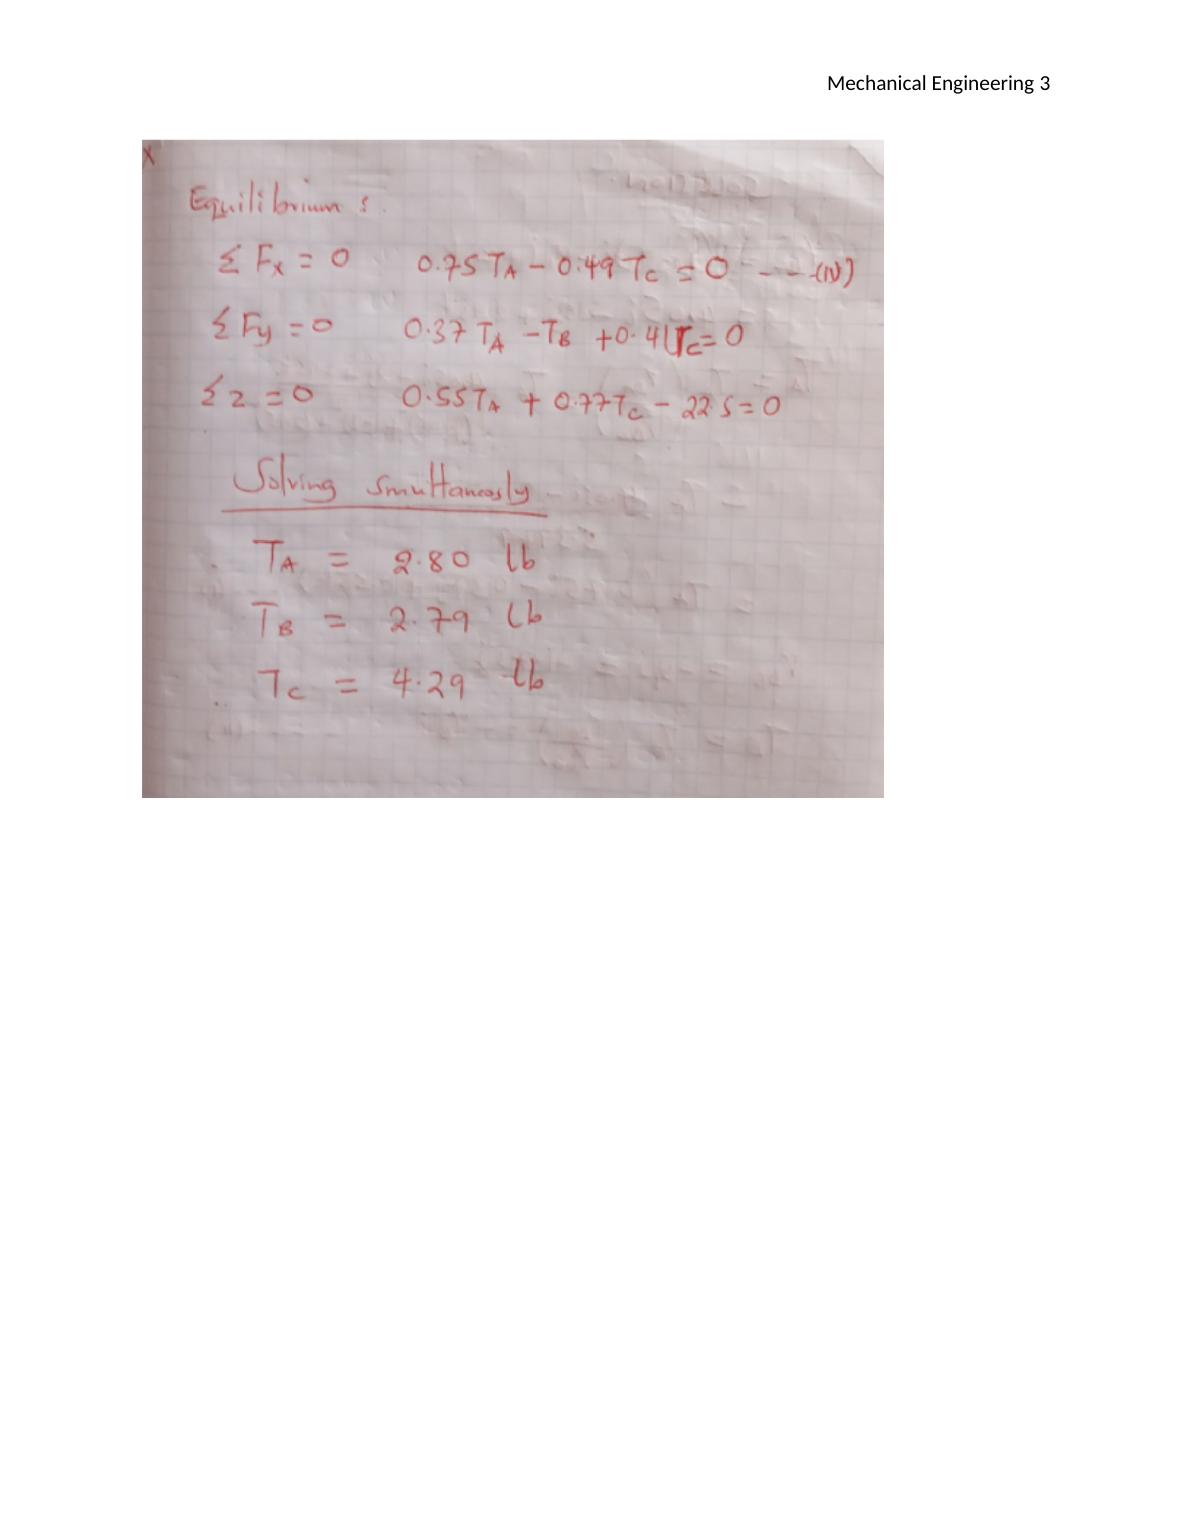 Mechanical Engineering 3
X
Equilibrium :
Σ Fx = 0 0.75 TA - 0.49 Tc = 0 --- (IV)
Σ Fy = 0 0.37 TA - TB + 0.41 Tc = 0
Σ z = 0 0.55TA + 0.77Tc - 22.5 = 0
Solving Smultaneosly
TA = 2.80 lb
TB = 2.79 lb
Tc = 4.29 lb